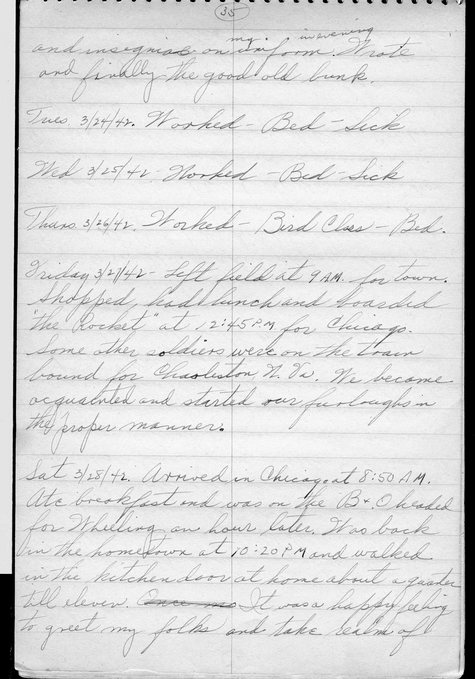 35
and insignias on my uniform. in evening Wrote
and finally the good old bunk.
Tues 3/24/42. Worked - Bed - Sick
Wed 3/25/42 - Worked - Bed - Sick
Thurs 3/26/42. Worked - Bird Class - Bed.
Friday 3/27/42 - Left field at 9 A.M. for town.
Shopped, had lunch and boarded
"the Rocket" at 12:45 P.M. for Chicago.
Some other soldiers were on the train
bound for Charleston W. Va. We became
acquainted and started our furloughs in
the proper manner.
Sat 3/28/42. Arrived in Chicago at 8:50 A.M.
Ate breakfast and was on the B+O headed
for Wheeling an hour later. Was back
in the hometown at 10:20 P.M and walked
in the kitchen door at home about a quarter
till eleven. It was a happy feeling
to greet my folks and take realm of